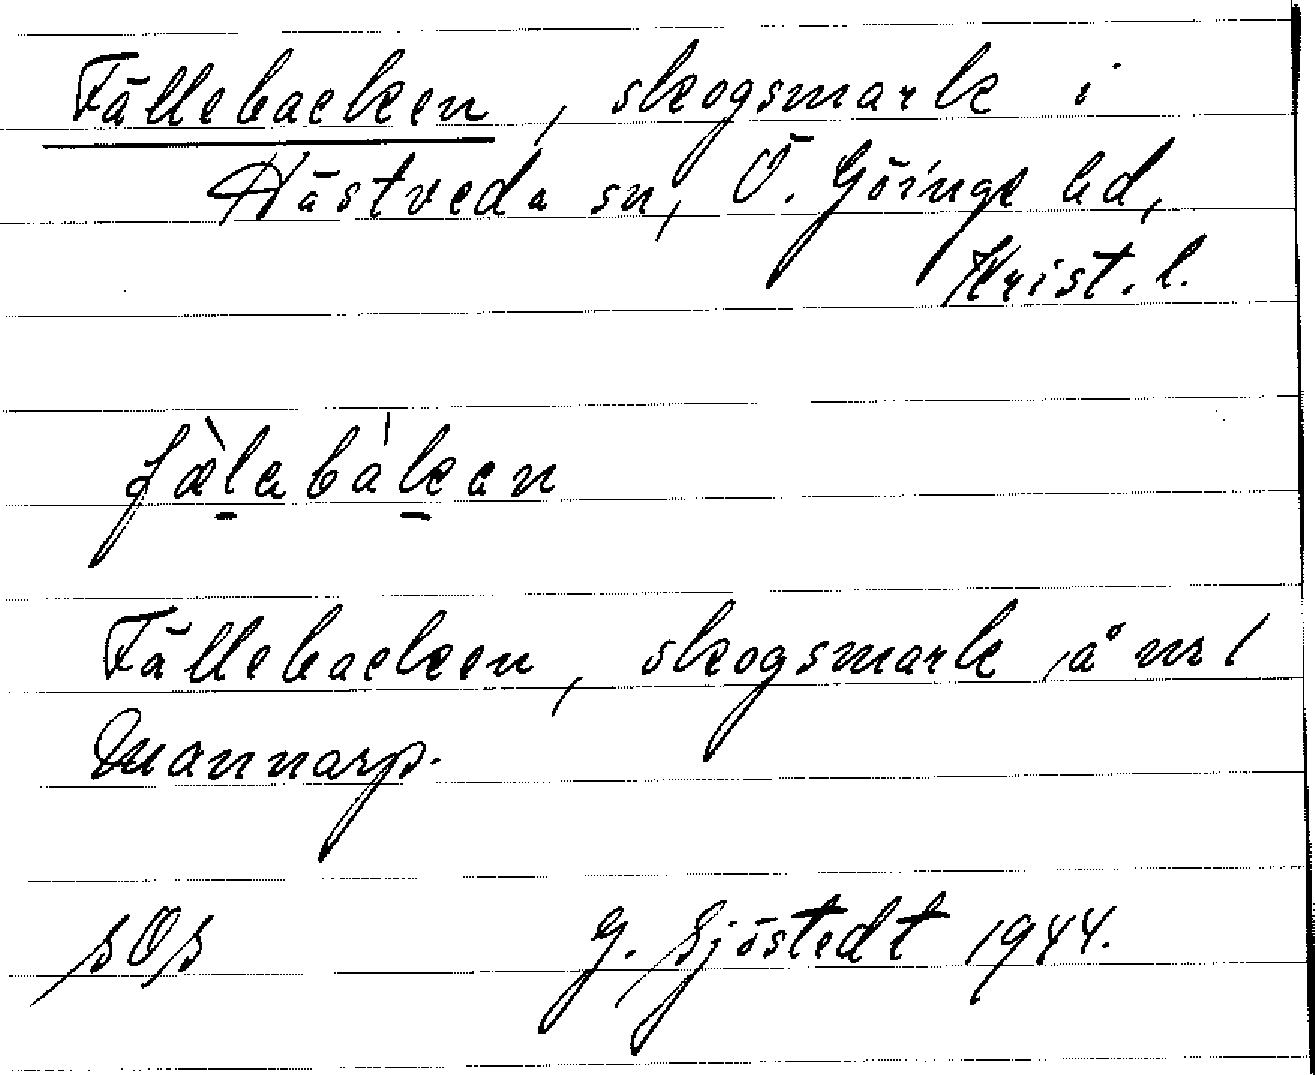 Fällebacken, skogsmark i
Hästveda sn, Ö. Göinge hd,
Krist. l.
fæ̀l̲abál̲kan
Fällebacken, skogsmark å nr 1
Mannarp.
SOS G. Sjöstedt 1944.